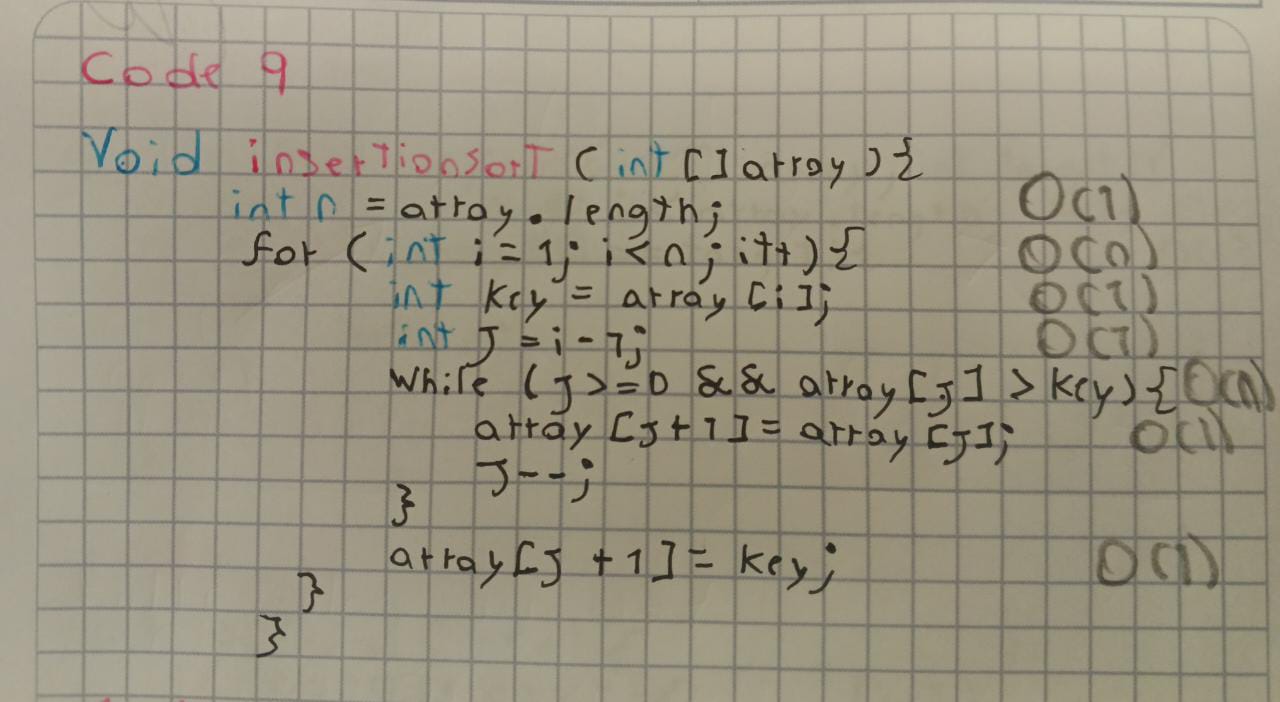 Code 9
Void insertionsort (int [] array) {
int n = array.length; O(1)
for (int i = 1; i < n; i++) { O(n)
int key = array [i]; O(1)
int J = i - 1; O(1)
While (J >= 0 && array [J] > key) { O(n)
array [J + 1] = array [J]; O(1)
J--;
}
array [J + 1] = key; O(1)
}
}